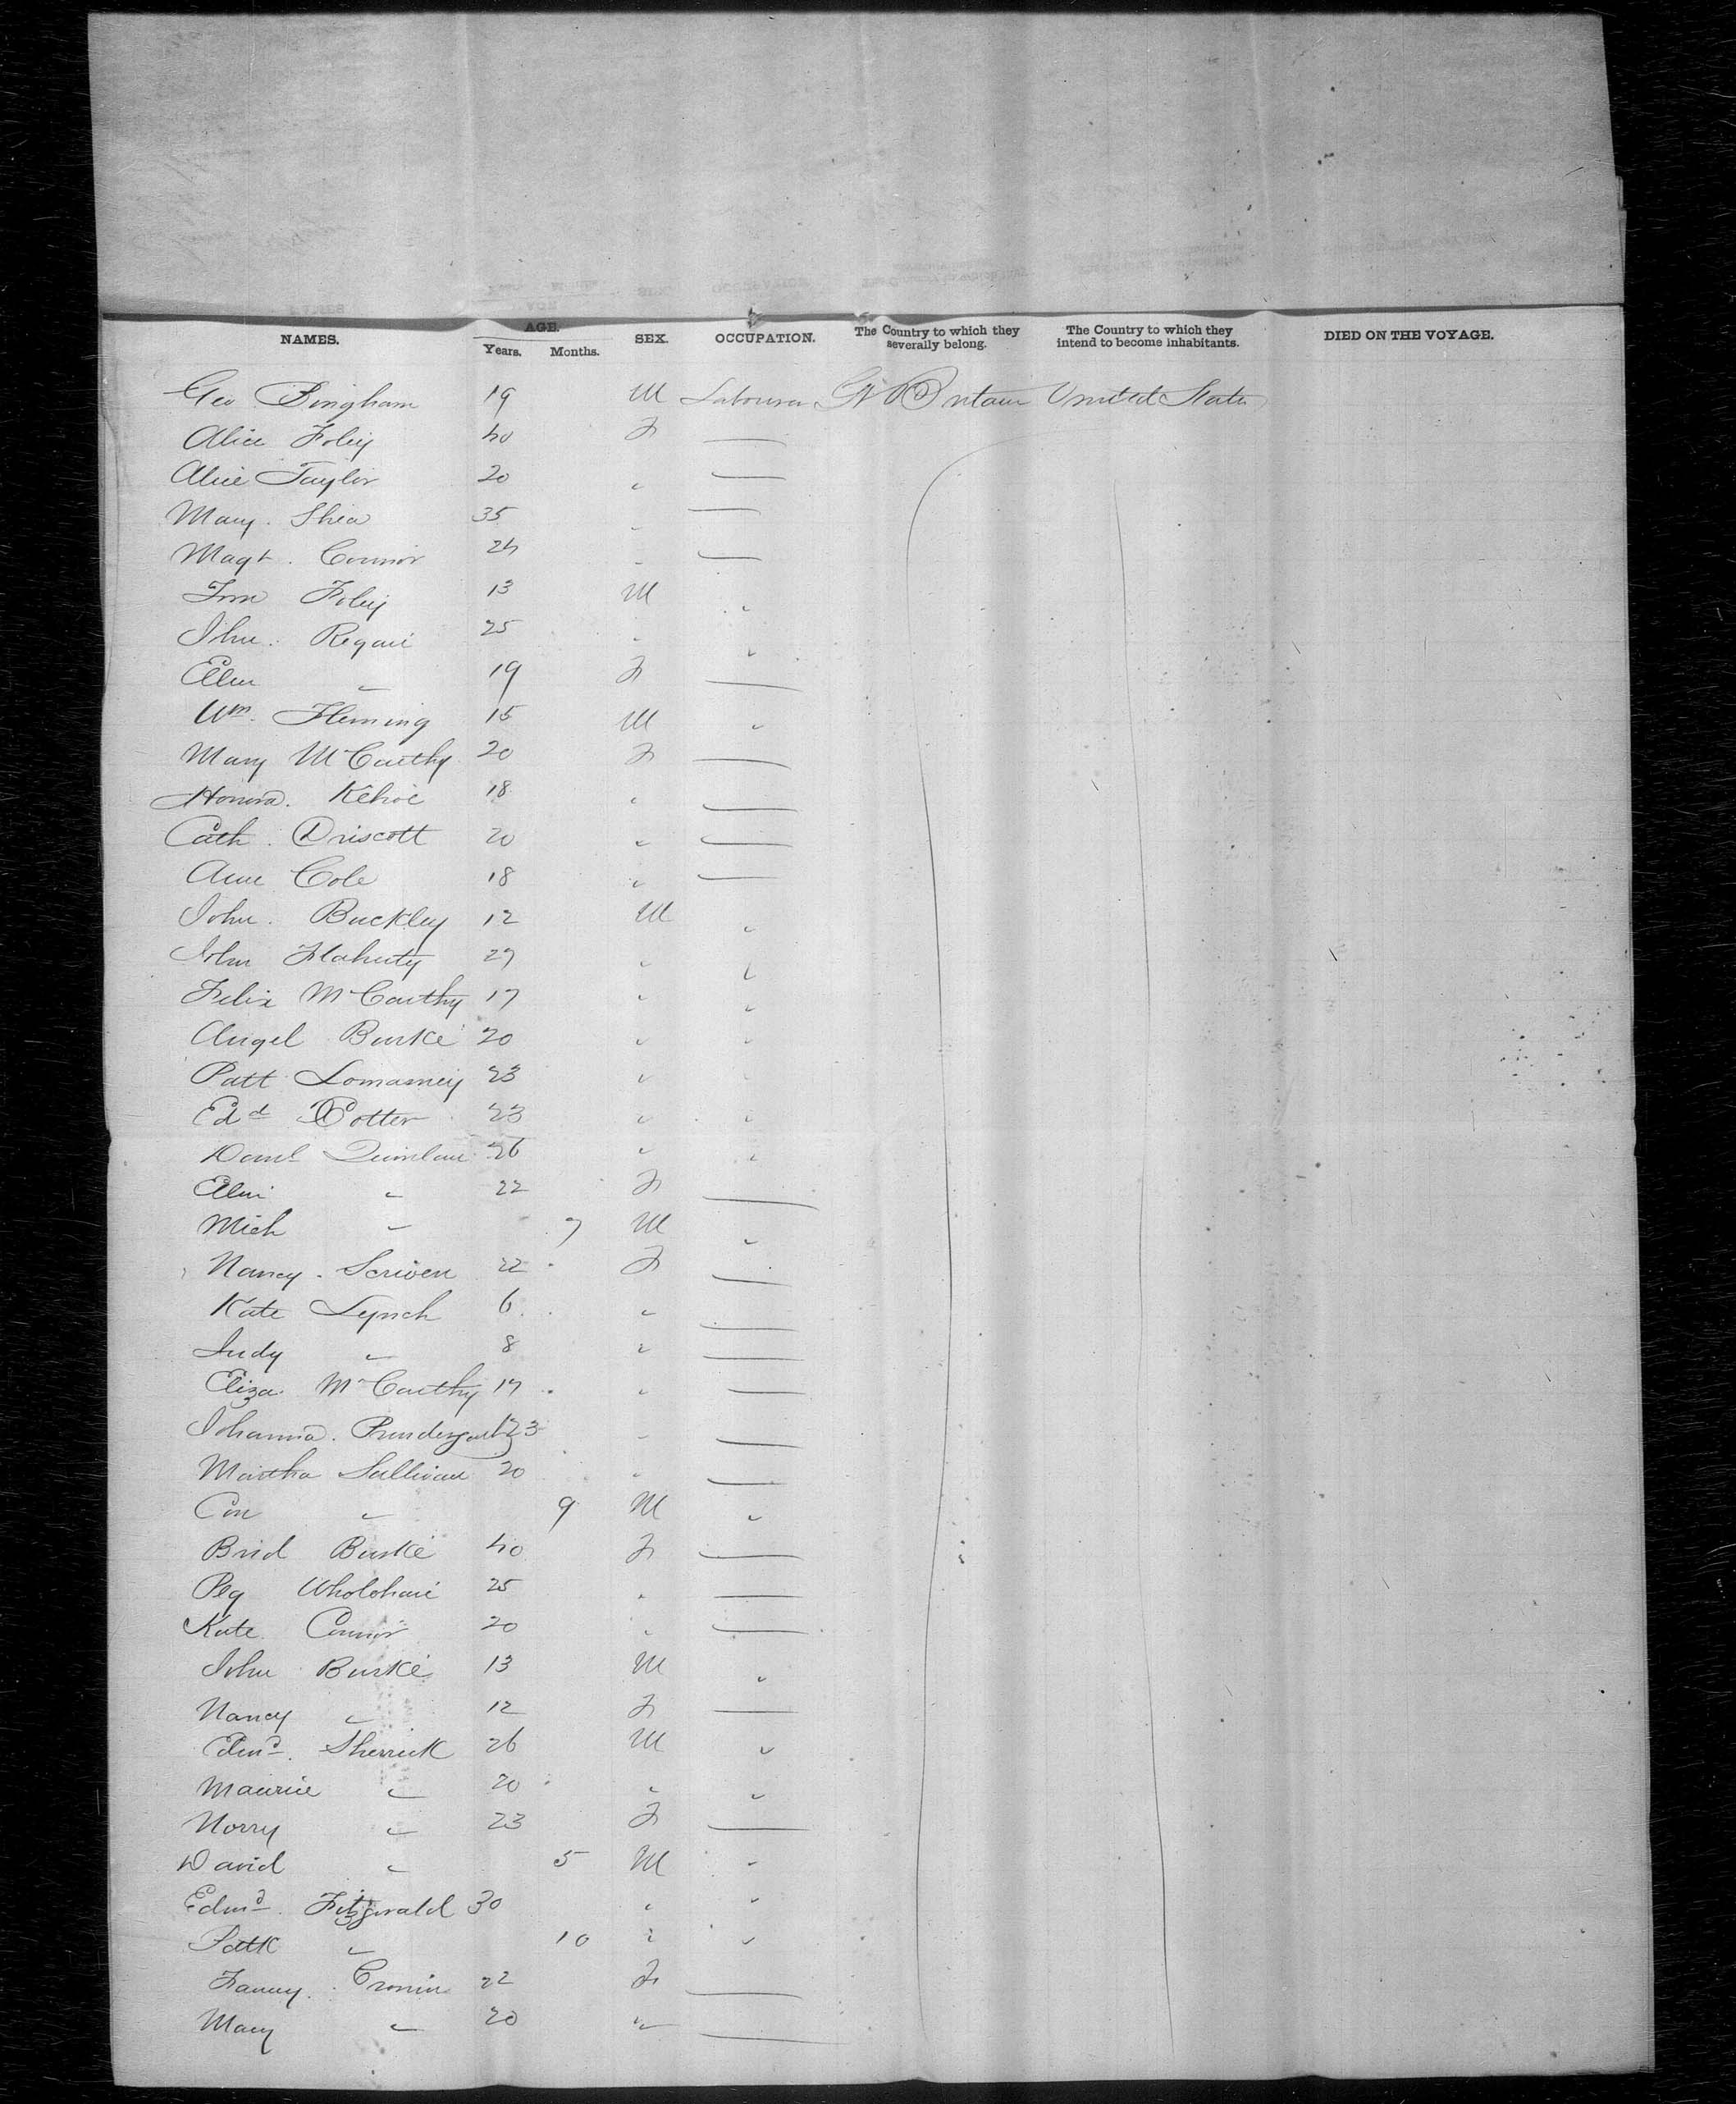 NAMES. AGE. Years. Months. SEX. OCCUPATION. The Country to which they severally belong. The Country to which they intend to become inhabitants. DIED ON THE VOYAGE.
Geo Bingham 19 M Labourer Gt Britain United States
Alice Foley 40 F —
Alice Taylor 20 " —
Mary Shea 35 " —
Magt. Connor 24 " —
Foley 13 M "
Jhn. Regan 25 " "
Ellen " 19 F —
Wm. Fleming 15 M "
Mary McCarthy 20 F —
Honora. Kehoe 18 " —
Cath. Driscott 20 " —
Ann Cole 18 " —
John. Buckley 12 M "
John Flaherty 27 " "
Felix McCarthy 17 " "
Angel Burke 20 " "
Patt Lomasney 23 "
Edd Cotter 23 " "
Danl Quinlan 26 " "
Ellen " 22 F —
Mich " 7 M "
Nancy Scriven 22 F —
Kate Lynch 6 " —
Judy " 8 " —
Eliza McCarthy 17 " —
Johanna. Prendergast 23 " —
Martha Sullivan 20 " —
Con " 9 M "
Brid Burke 40 F —
Peg Wholohan 25 " —
Kate Connor 20 " —
John Burke 13 M "
Nancy " 12 F —
Edmd. Sherrick 26 M "
Maurice " 20 " "
Norry " 23 F —
David " 5 M "
Edmd. Fitzgerald 30 " "
Patk " 10 " "
Fanny Cronin 22 F —
Mary " 20 " —